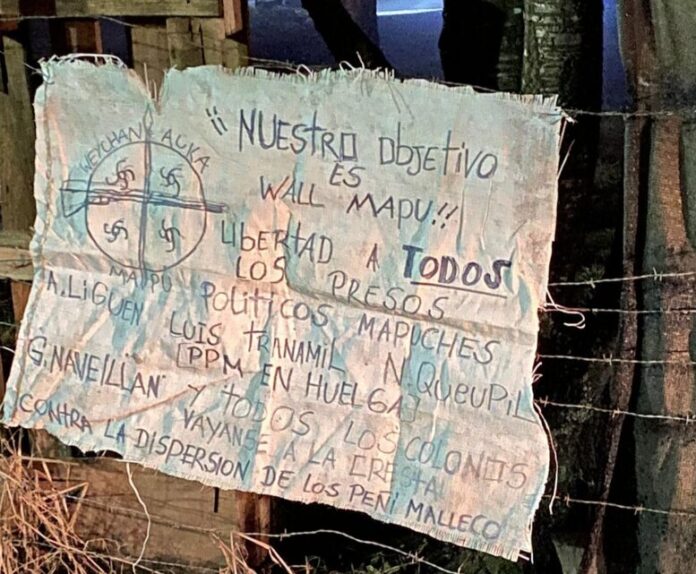 WEYCHAN AUKA
MAPU
¡¡ NUESTRO ObjETIVO
ES
WALL MAPU!!
LIBERTAD A TODOS
LOS PRESOS
POLITICOS MAPUCHES
A. LIGUEN LUIS TRANAMIL N. QUEUPIL
[PPM EN HUELGA]
G. NAVEILLAN Y TODOS LOS COLONOS
VAYANSE A LA CRESTA
CONTRA LA DISPERSION DE LOS PEÑI MALLECO